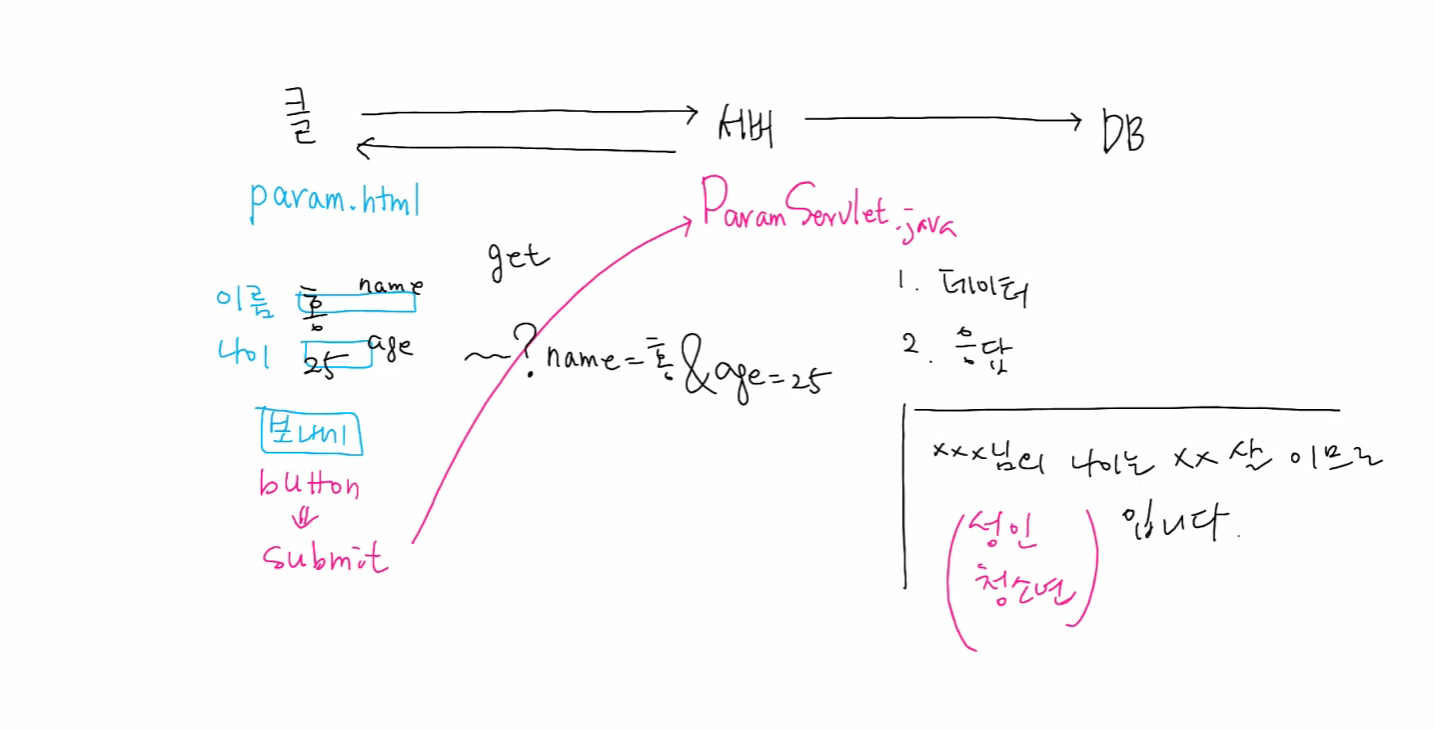 클 서버 DB
param.html
ParamServlet.java
get
이름 홍 name
나이 25 age
~?name=홍&age=25
보내기
button
⇓
submit
1. 데이터
2. 응답
xxx님의 나이는 xx살 이므로
(성인
청소년) 입니다.